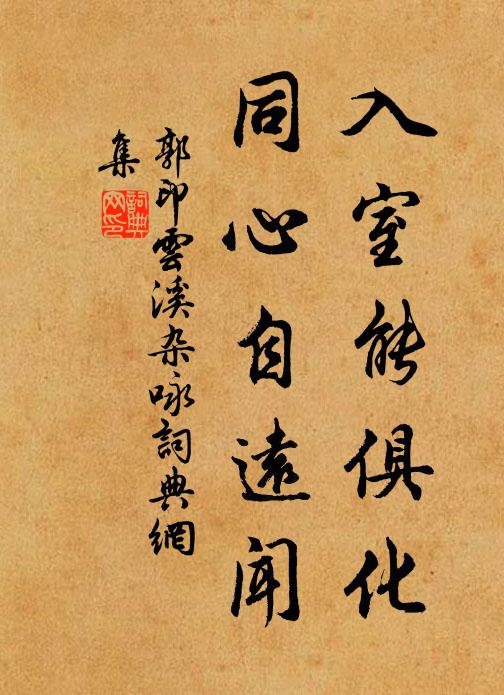 入室能俱化
同心自遠聞
郭印雲溪杂咏詞典網
集
詞典网印